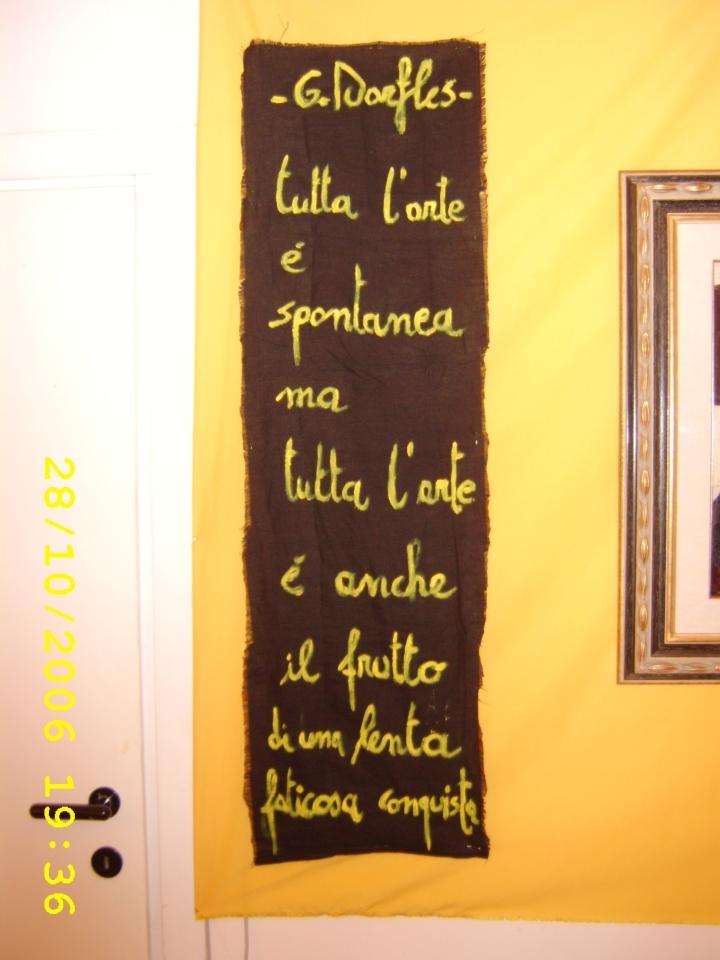 -G. Dorfles-
tutta l'arte
é
spontanea
ma
tutta l'arte
é anche
il frutto
di una lenta
faticosa conquista
28/10/2006 19:36